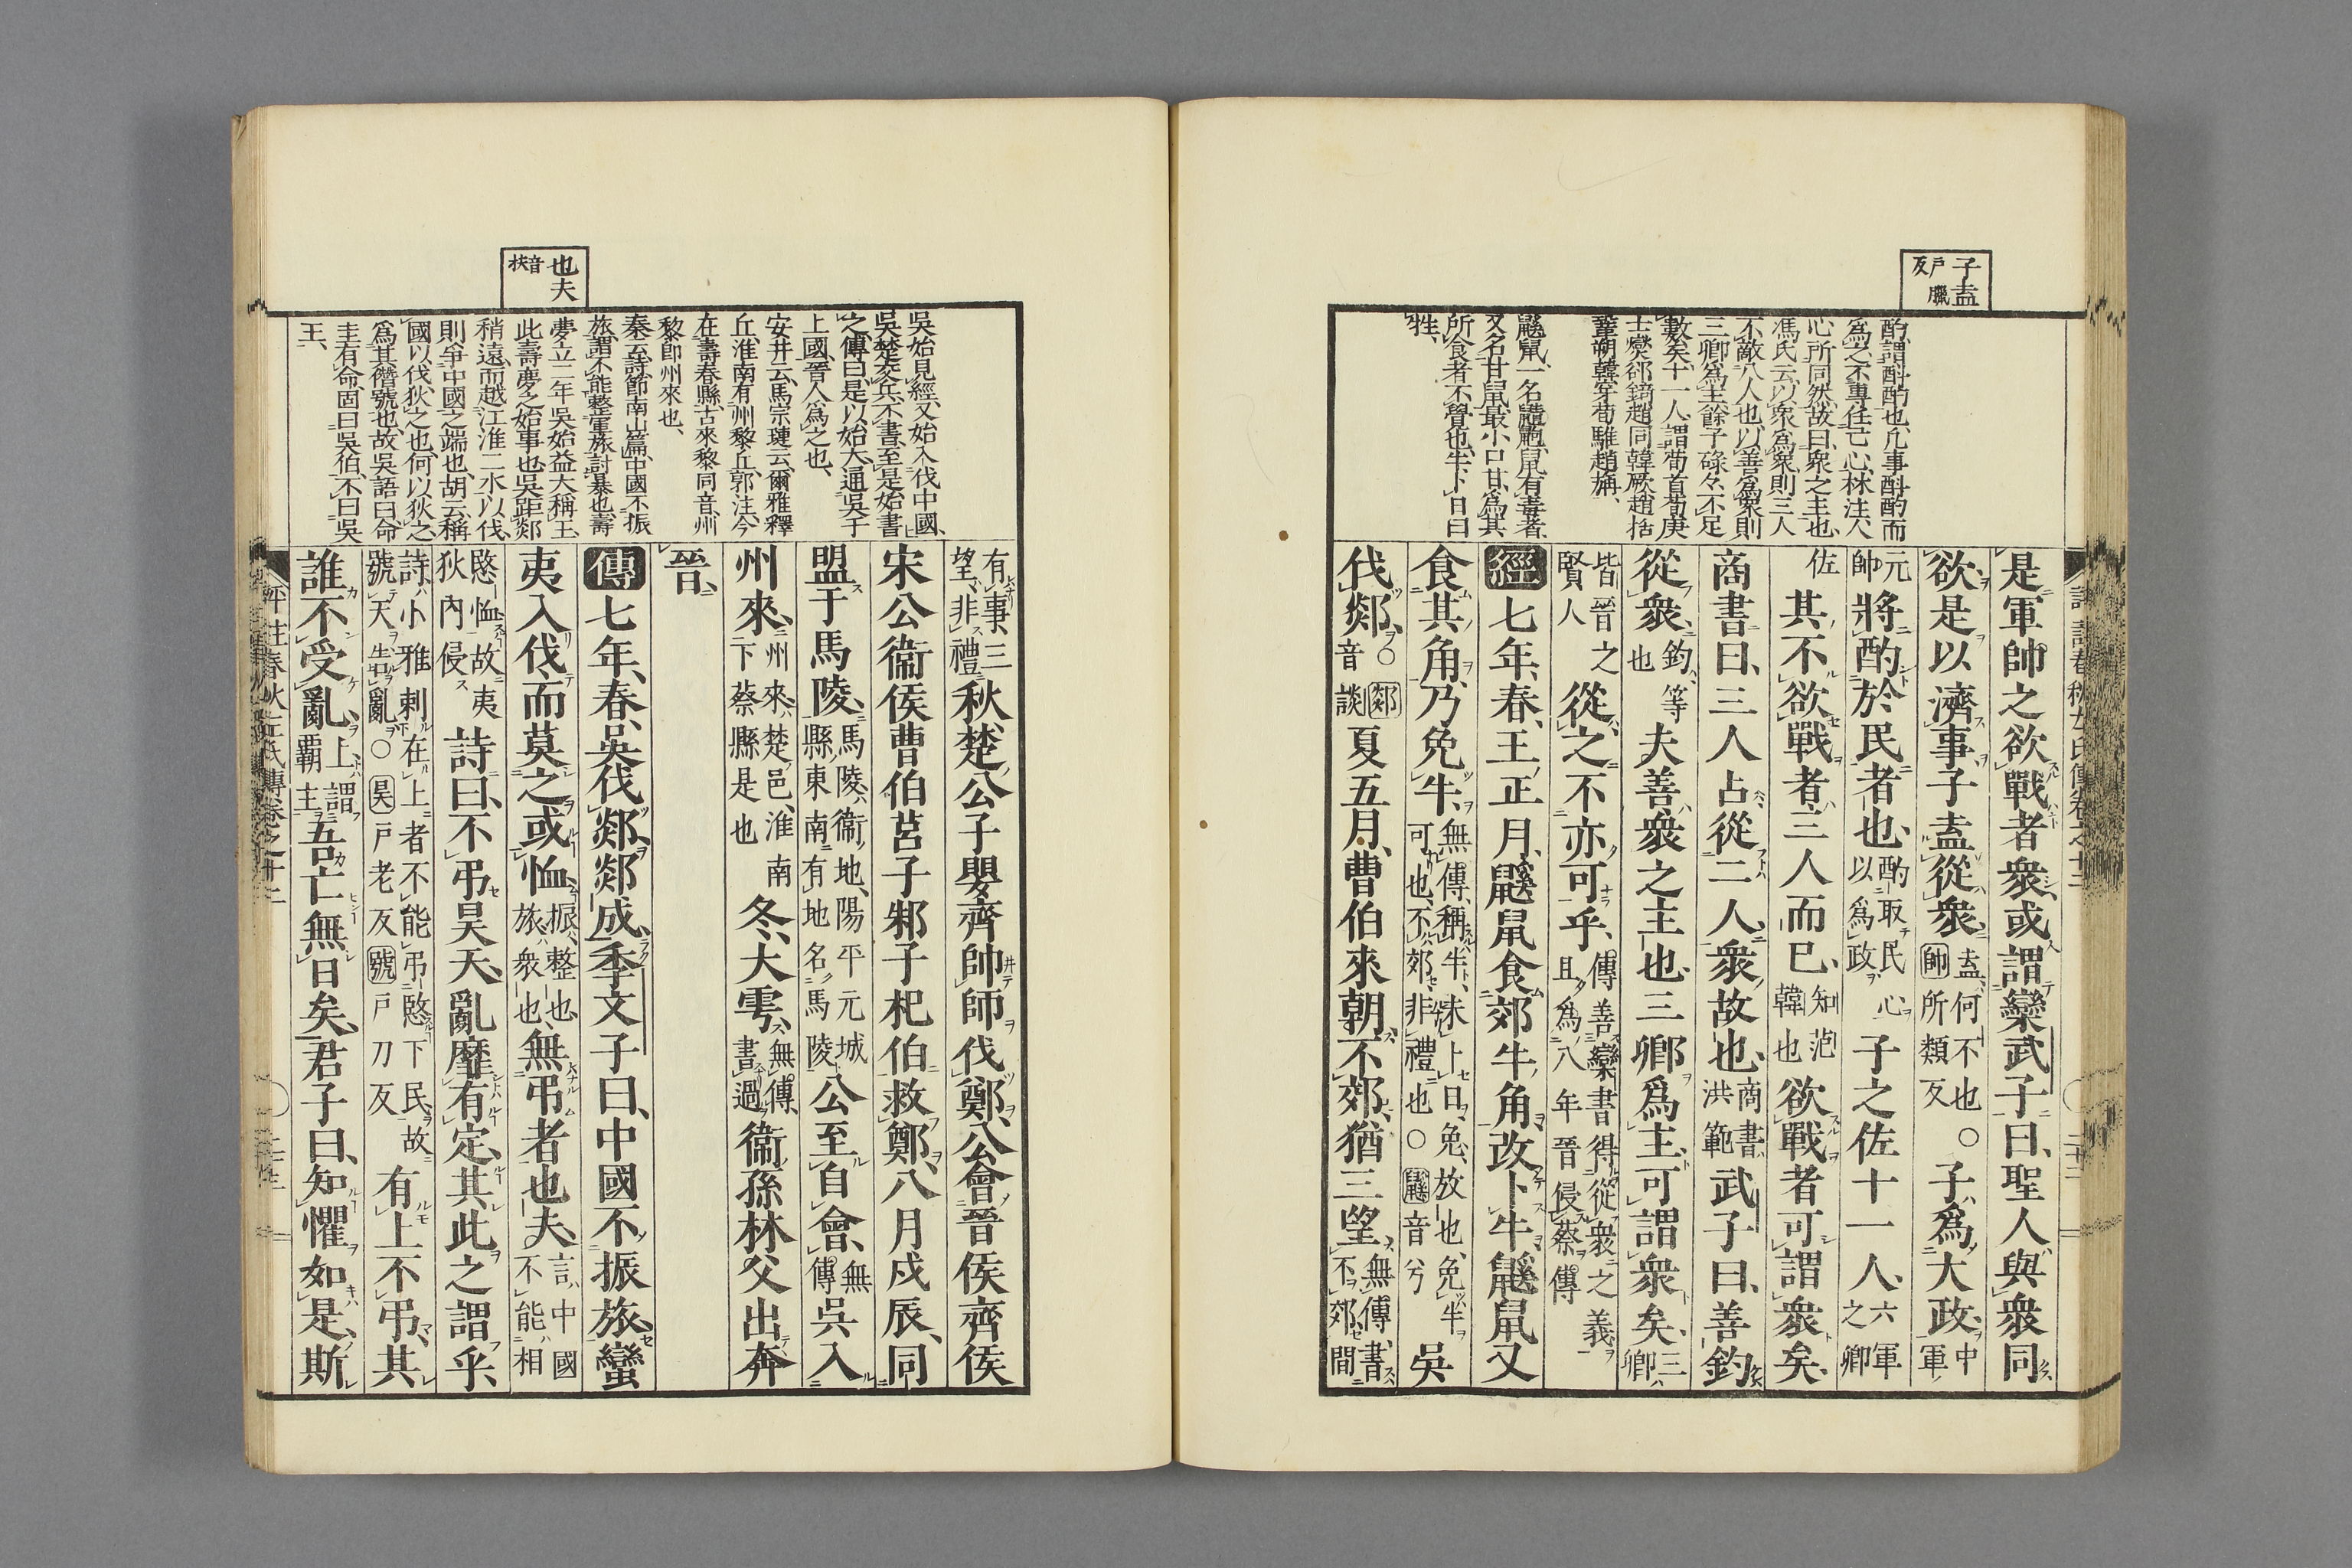 子盍
戶臘
反
酌謂斟酌也凡事斟酌而
爲之不專任己心林注人
心所同然故曰衆之主也
馮氏云以衆爲衆則三人
不敵八人也以善爲衆則
三卿爲主餘子碌々不足
數矣十一人謂荀首荀庚
士燮郤錡趙同韓厥趙括
鞏朔韓穿荀騅趙旃
鼷鼠一名䶅鼩鼠有毒者
又名甘鼠最小口甘爲其
所食者不覺也牛卜日曰
牲
是軍帥之欲戰者衆或謂欒武子曰聖人與衆同
欲是以濟事子盍從衆盍何不也帥所類反○子爲大政中軍
元帥將酌於民者也酌取民心以爲政子之佐十一人六軍之卿
佐其不欲戰者三人而已知范韓也欲戰者可謂衆矣
商書曰三人占從二人衆故也商書洪範武子曰善鈞
從衆鈞等也夫善衆之主也三卿爲主可謂衆矣三卿
皆晉之賢人從之不亦可乎傳善欒書得從衆之義且爲八年晉侵蔡傳
經七年春王正月鼷鼠食郊牛角改卜牛鼷鼠又
食其角乃免牛無傳稱牛未卜日免放也免牛可也不郊非禮也○鼷音兮吳
伐郯○郯音談夏五月曹伯來朝不郊猶三望無傳書不郊間
也夫
音扶
吳始見經又始入伐中國
吳楚交兵不書至是始書
之傳曰是以始大通吳于
上國晉人爲之也
安井云馬宗璉云爾雅釋
丘淮南有州黎丘郭注今
在壽春縣古來黎同音州
黎卽州來也
秦云詩節南山篇中國不振
旅謂不能整軍旅討暴也壽
夢立二年吳始益大稱王
此壽夢之始事也吳距郯
稍遠而越江淮二水以伐
則爭中國之端也胡云稱
國以伐狄之也何以狄之
爲其僭號也故吳語曰命
圭有命固曰吳伯不曰吳
王
有事三望非禮秋楚公子嬰齊帥師伐鄭公會晉侯齊侯
宋公衞侯曹伯莒子邾子杞伯救鄭八月戌辰同
盟于馬陵馬陵衞地陽平元城縣東南有地名馬陵公至自會無傳吳入
州來州來楚邑淮南下蔡縣是也冬大雩無傳書過衞孫林父出奔
晉
傳七年春吳伐郯郯成季文子曰中國不振旅蠻
夷入伐而莫之或恤振整也旅衆也無弔者也夫言中國不能相
愍恤故夷狄內侵詩曰不弔昊天亂靡有定其此之謂乎
詩小雅刺在上者不能弔愍下民故號天告亂○昊戶老反號戶刀反有上不弔其
誰不受亂上謂覇主吾亡無日矣君子曰知懼如是斯